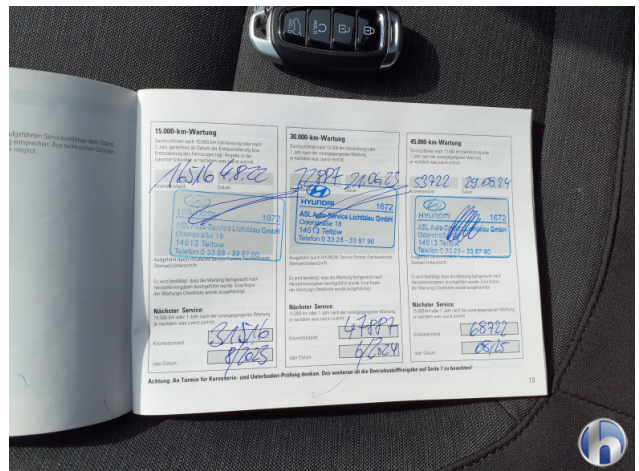 15.000-km-Wartung
Durchzuführen nach 15.000 km Fahrleistung oder nach
je nachdem was zuerst eintritt
16516 4.8.22
Kilometerstand Datum
HYUNDAI
1672
ASL Auto-Service Lichtblau GmbH
Oderstraße 18
14513 Teltow
Telefon 0 33 28 - 33 87 90
Ausgeführt durch HYUNDAI Service-Partner, Fachwerkstatt
Stempel/Unterschrift
Es wird bestätigt, dass die Wartung fachgerecht nach
Herstellervorgaben durchgeführt wurde. Eine Kopie
der Wartungs-Checkliste wurde ausgehändigt.
Nächster Service:
15.000 km oder 1 Jahr nach der vorangegangenen Wartung,
je nachdem was zuerst eintritt
31516
Kilometerstand
8/2023
oder Datum
30.000-km-Wartung
Durchzuführen nach 15.000 km Fahrleistung oder
1 Jahr nach der vorangegangenen Wartung,
je nachdem was zuerst eintritt
21.06.23
Kilometerstand Datum
HYUNDAI
1672
ASL Auto-Service Lichtblau GmbH
Oderstraße 18
14513 Teltow
Telefon 0 33 28 - 33 87 90
Ausgeführt durch HYUNDAI Service-Partner, Fachwerkstatt
Stempel/Unterschrift
Es wird bestätigt, dass die Wartung fachgerecht nach
Herstellervorgaben durchgeführt wurde. Eine Kopie
der Wartungs-Checkliste wurde ausgehändigt.
Nächster Service:
15.000 km oder 1 Jahr nach der vorangegangenen Wartung,
je nachdem was zuerst eintritt
47887
Kilometerstand
6/2024
oder Datum
45.000-km-Wartung
Durchzuführen nach 15.000 km Fahrleistung oder
1 Jahr nach der vorangegangenen Wartung,
je nachdem was zuerst eintritt
53722 29.08.24
Kilometerstand Datum
HYUNDAI
1672
ASL Auto-Service Lichtblau GmbH
Oderstraße 18
14513 Teltow
Telefon 0 33 28 - 33 87 90
Ausgeführt durch HYUNDAI Service-Partner, Fachwerkstatt
Stempel/Unterschrift
Es wird bestätigt, dass die Wartung fachgerecht nach
Herstellervorgaben durchgeführt wurde. Eine Kopie
der Wartungs-Checkliste wurde ausgehändigt.
Nächster Service:
15.000 km oder 1 Jahr nach der vorangegangenen Wartung,
je nachdem was zuerst eintritt
68722
Kilometerstand
08/25
oder Datum
Achtung: An Termin für Karosserie- und Unterboden-Prüfung denken. Des weiteren ist die Betriebsstofffreigabe auf Seite 7 zu beachten!
19